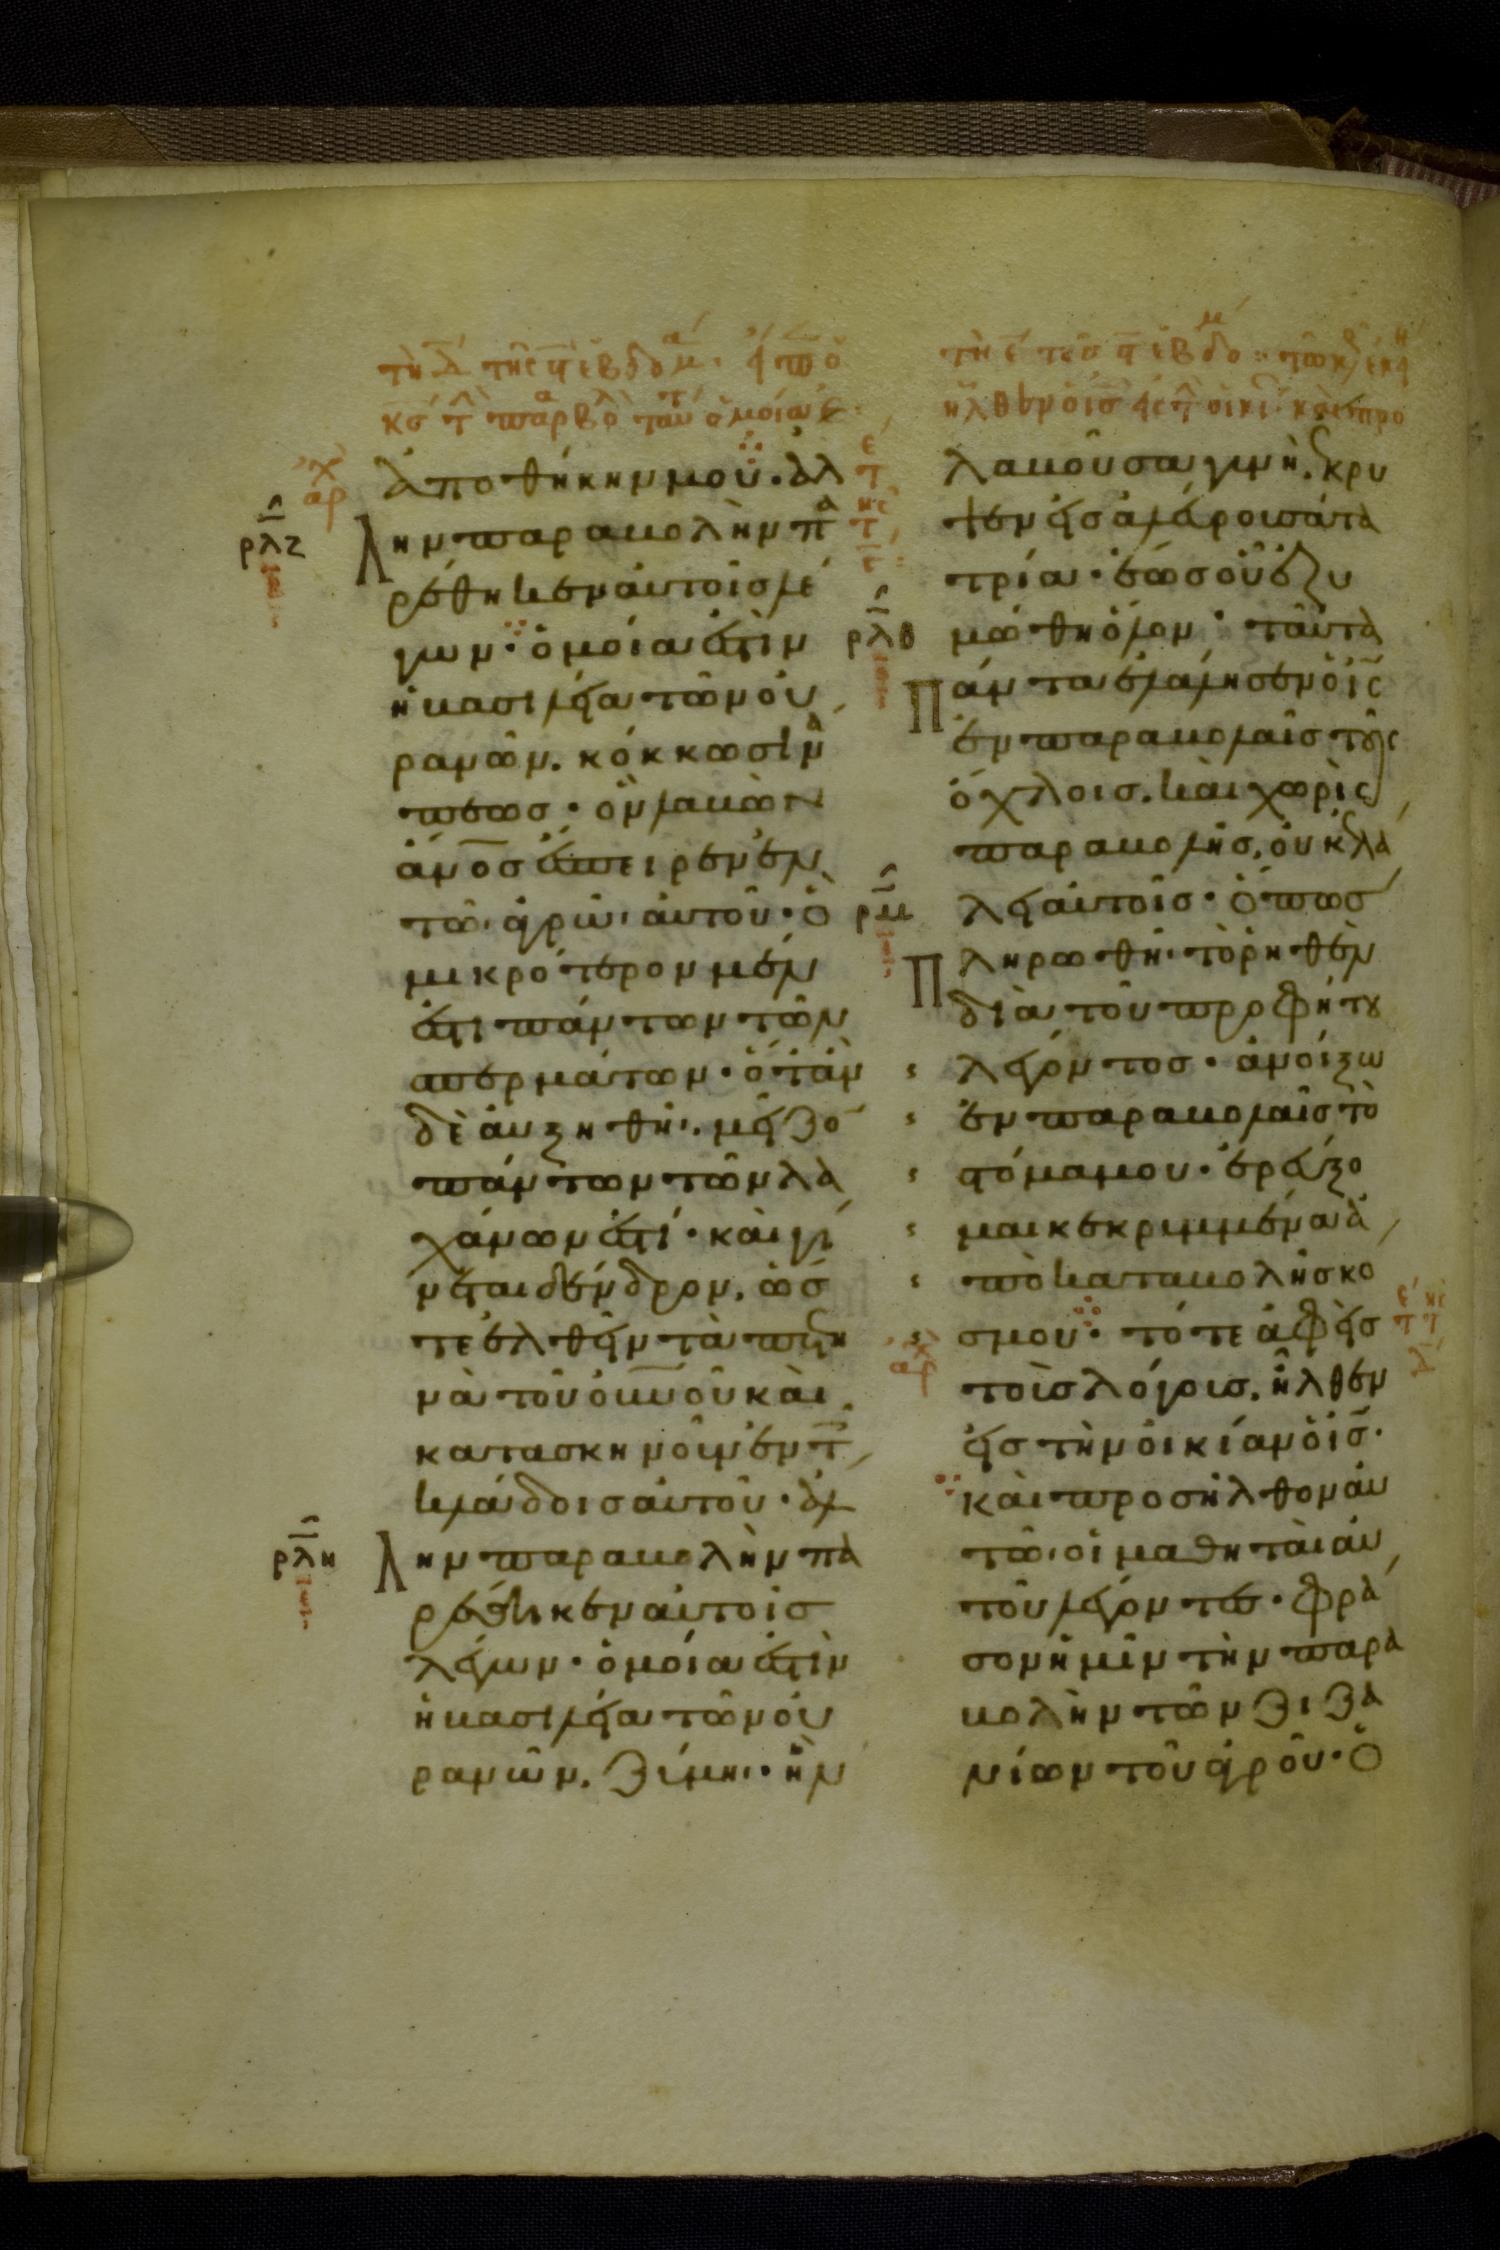 τη δ της ϛ εβδομα. ειπεν ο
κς τ παραβολ ταυτ ομοιωθ
ἀποθήκην μου· ἀλ
λην παραβολὴν πα
ρέθηκεν αὐτοῖσ λέ
γων· ὁμοία ἐστὶν
ἡ βασιλεία τῶν οὐ
ρανῶν. κόκκω σινά
πεωσ· ὃν λαβὼν
ἄν̅ο̅σ̅ ἔσπειρεν ἐν
τῶ ἀγρῶ αὐτοῦ· ὃ
μικρότερον μέν
ἐστι πάντων τῶν
σπερμάτων· ὅταν
δὲ αὐξηθῆ. μεῖζο
πάντων τῶν λα
χάνων ἐστί· καὶ γί
νεται δένδρον. ὡσ
τε ἐλθεῖν τὰ πετει
νὰ τοῦ οὐ̅ν̅οῦ καὶ
κατασκηνοῦν ἐν τ̅
κλάδοισ αὐτοῦ· ἀλ
λην παραβολὴν πα
ρέθηκεν αὐτοῖσ
λέγων· ὁμοία ἐστὶν
ἡ βασιλεία τῶν οὐ
ρανῶν. ζύμη· ἣν
ρλζ
ρλη
αρχ
τη ε της ϛ εβδομ τω κ εκει
ηλθεν ο ισ εις τ οικι και προ
λαβοῦσα γυνὴ. ἔκρυ
ψεν εἰσ ἀλεύρου σάτα
τρία· ἕωσ οὗ ἐζυ
μώθη ὅλον· ταῦτα
πάντα ἐλάλησεν ὁ ι̅ς̅
ἐν παραβολαῖσ τοῖς
ὄχλοισ. καὶ χωρὶς
παραβολῆσ. οὐκ ἐλά
λει αὐτοῖσ· ὅπωσ
πληρωθῆ τὸ ῥηθὲν
διὰ τοῦ προφήτου
λέγοντοσ· ἀνοίξω
ἐν παραβολαῖσ τὸ
στόμα μου· ἐρεύξο
μαι κεκρυμμένα ἀ
πὸ καταβολῆσ κό
σμου· τότε ἀφεὶσ
τοὺσ λόγουσ. ἦλθεν
εἰσ τὴν οἰκίαν ὁ ι̅σ̅·
καὶ προσῆλθον αὐ
τῶ οἱ μαθηταὶ αὐ
τοῦ λέγοντεσ· φρά
σον ἡμῖν τὴν παρα
βολὴν τῶν ζιζα
νίων τοῦ ἀγροῦ· ὁ
ρλθ
ρμ
αρχ